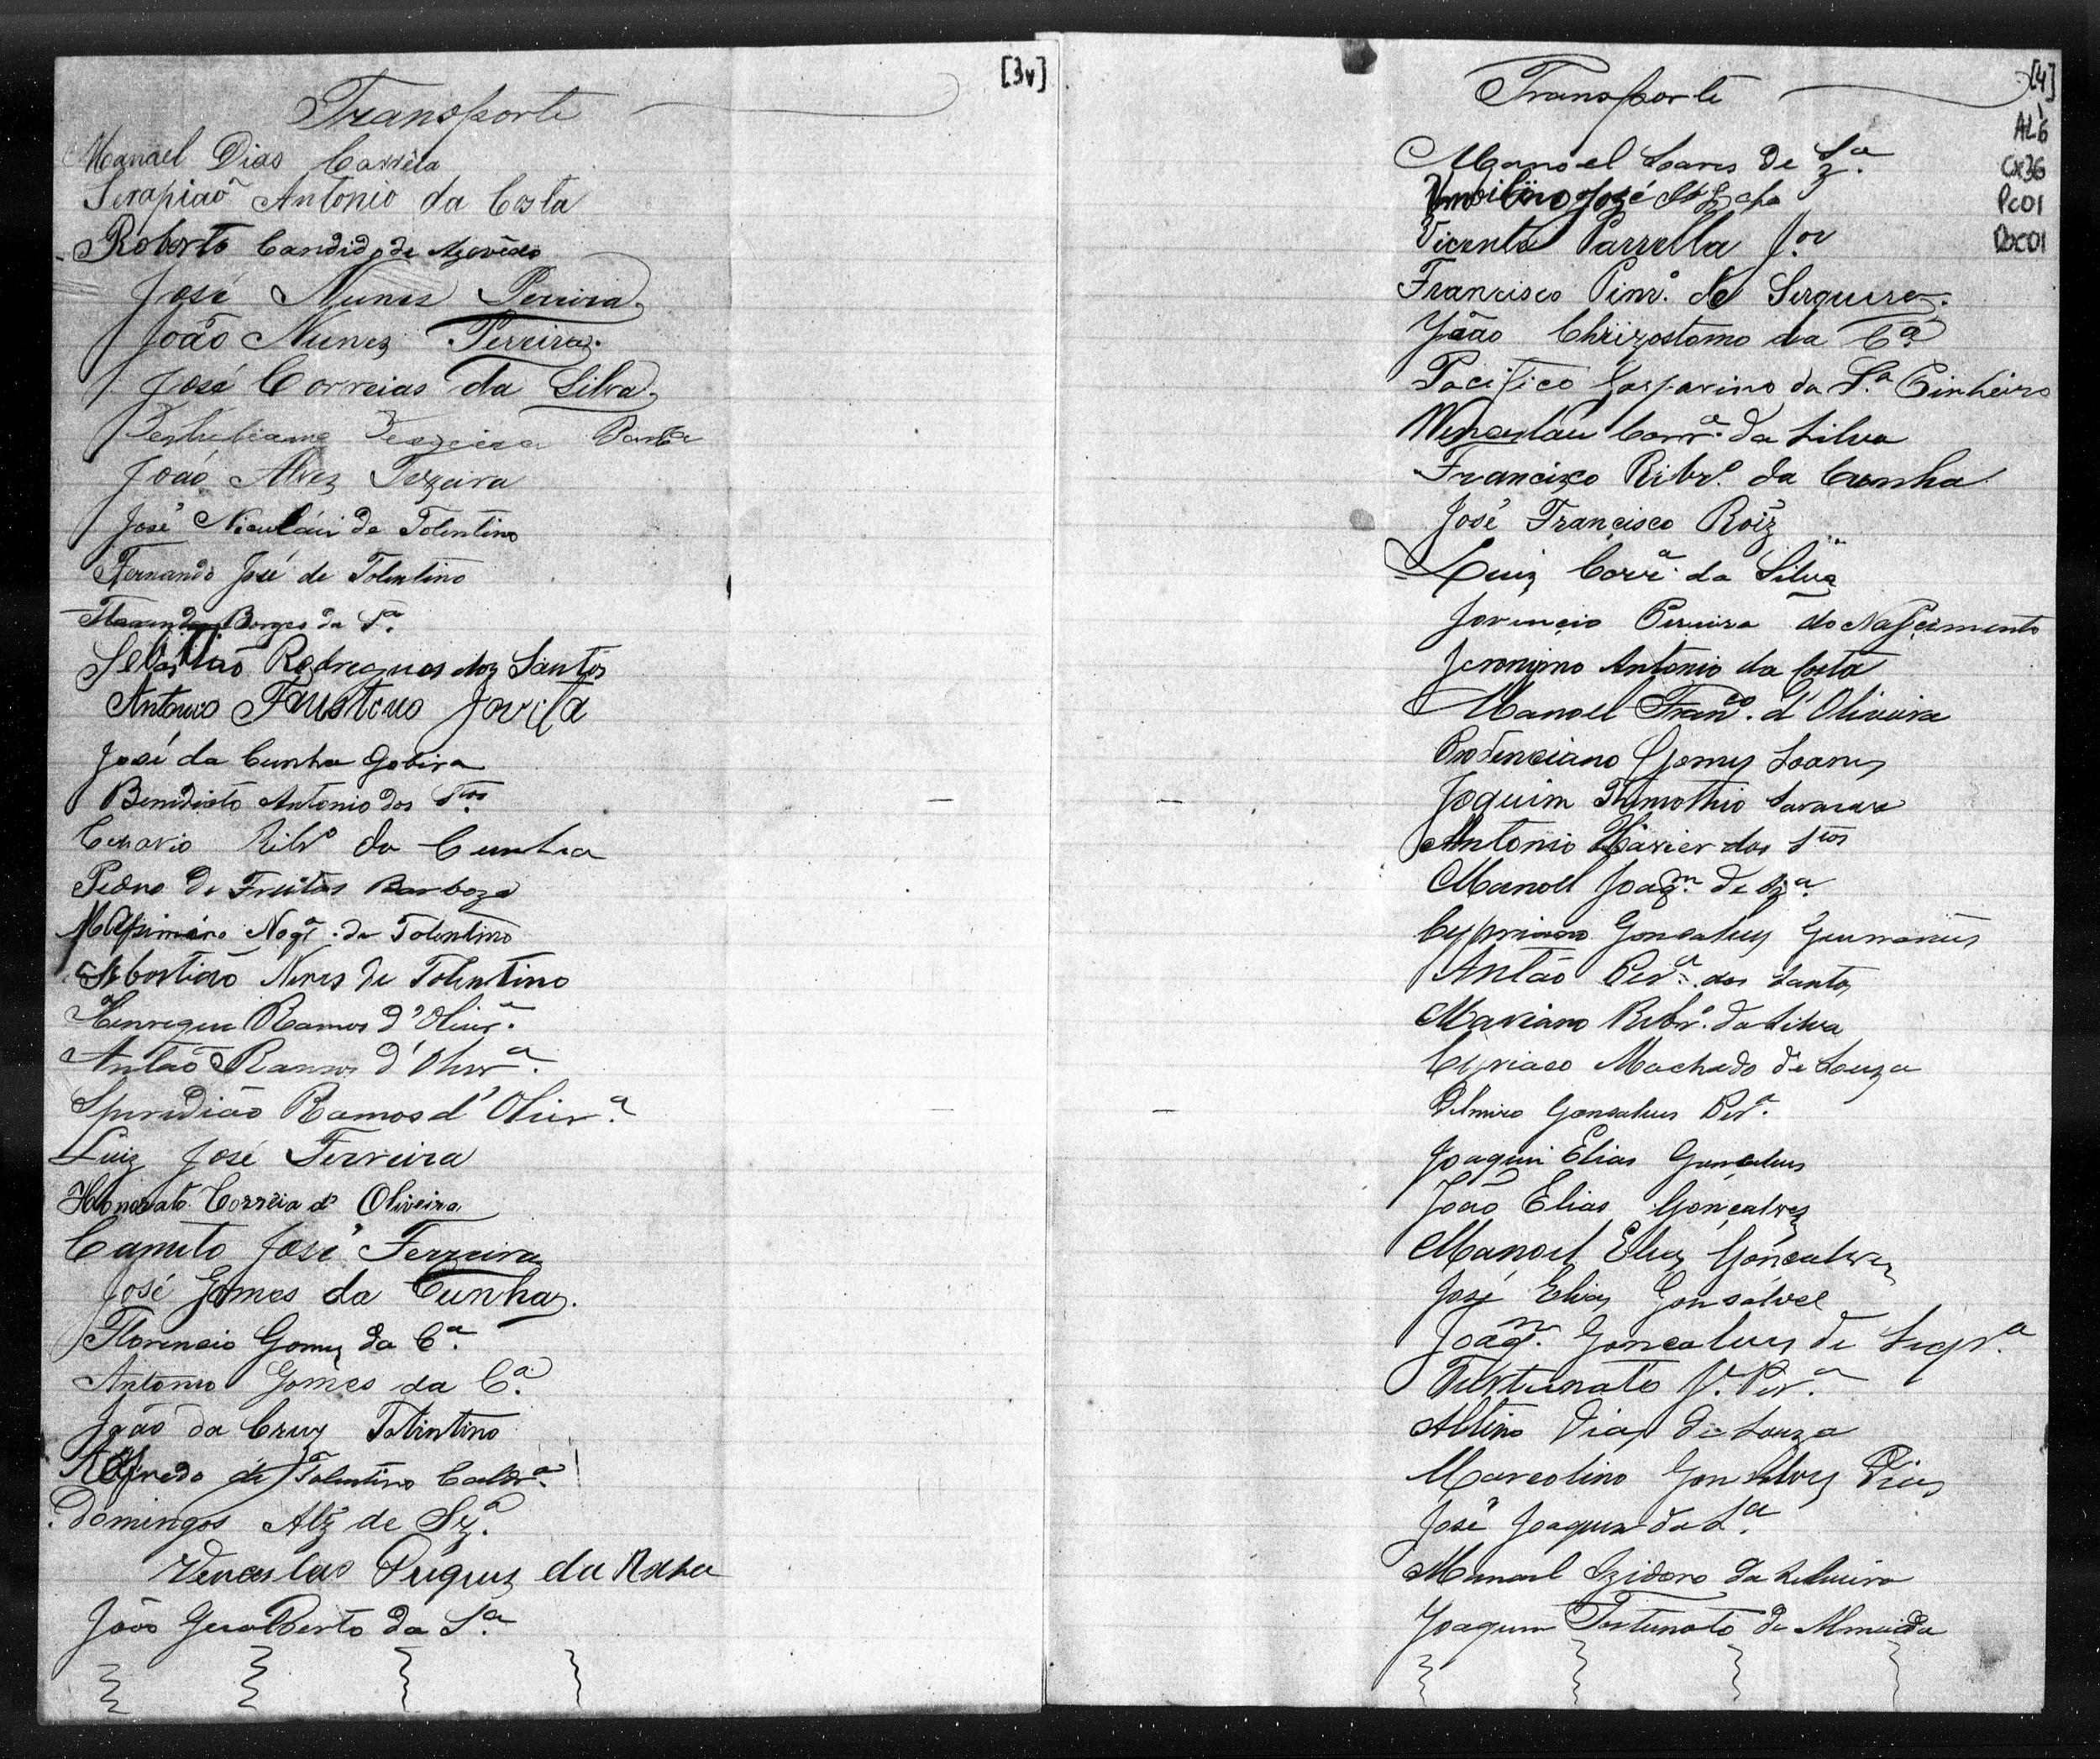 [3v]
Transporte
Manael Dias Corrêia
Serapião Antonio da Costa
Roberto Candido de Azevêdo
José Nunes Pereira
João Nunes Pereira.
José Correias da Silva
João Alves Texeira
José Niculáu de Tolentino
Fernando José de Tolentino
Borges da S.ª
Sebastião Redregues dos Santos
Antonio Faustino
José da Cunha Gobira
Benidicto Antonio dos S.tos
Cezario Ribr.º da Cunha
Pedro de Freitas Barboza
Nogr.ª de Tolentino
Sebastião Neves de Tolentino
Henrique Ramos d'Olivr.ª
Antão Ramos d'Olivr.ª
Speridião Ramos d'Olivr.ª
Luiz José Ferreira
Honorato Corrêia d' Oliveira
Canuto José Ferreira
José Gomes da Cunha.
Florencio Gomes da C.ª
Antonio Gomes da C.ª
João da Cruz Tolintino
Alfredo de Tolentino Caldr.ª
Domingos Alz de Sz.ª
Venceslao da
João Gualberto da S.ª
[4]
AL6
CX36
Pc01
Doc01
Transporte
Manoel Soares de Sz.ª
José
Vicente Parrella J.or
Francisco Pinr.º de Serqueira.
João Chrizostomo da C.ª
Pacifico Gasparino da S.ª Pinheiro
Wencesláu Corr.ª da Silva
Francisco Ribr.º da Cunha
José Francisco Roiz
Luiz Corr.ª da Silva
Jovencio Pereira do Nascimento
Jeronimo Antonio da Costa
Manoel Fran.co d'Oliveira
Prodenciano Gomes Soares
Joaquim Thimothio
Antonio Xavier dos S.tos
Manoel Joaq.m de Sz.ª
Cypriano Gonsalves
Antão Per.ª dos Santos
Mariano Ribr.º da Silva
Cyriaco Machado de Souza
Delmiro Gonsalves Per.ª
Joaquim Elias Gonsalves
João Elias Gonçalves
Manoel Elias Gonçalves
José Elias Gonsalvel
Joaq.m Goncalves de
Furtunato P.ª Per.ª
Altino Dias de Souza
Marcolino Gonsalves Dias
José Joaquim da S.ª
Manoel Izidoro da
Joaquim Fortunato de Almeida